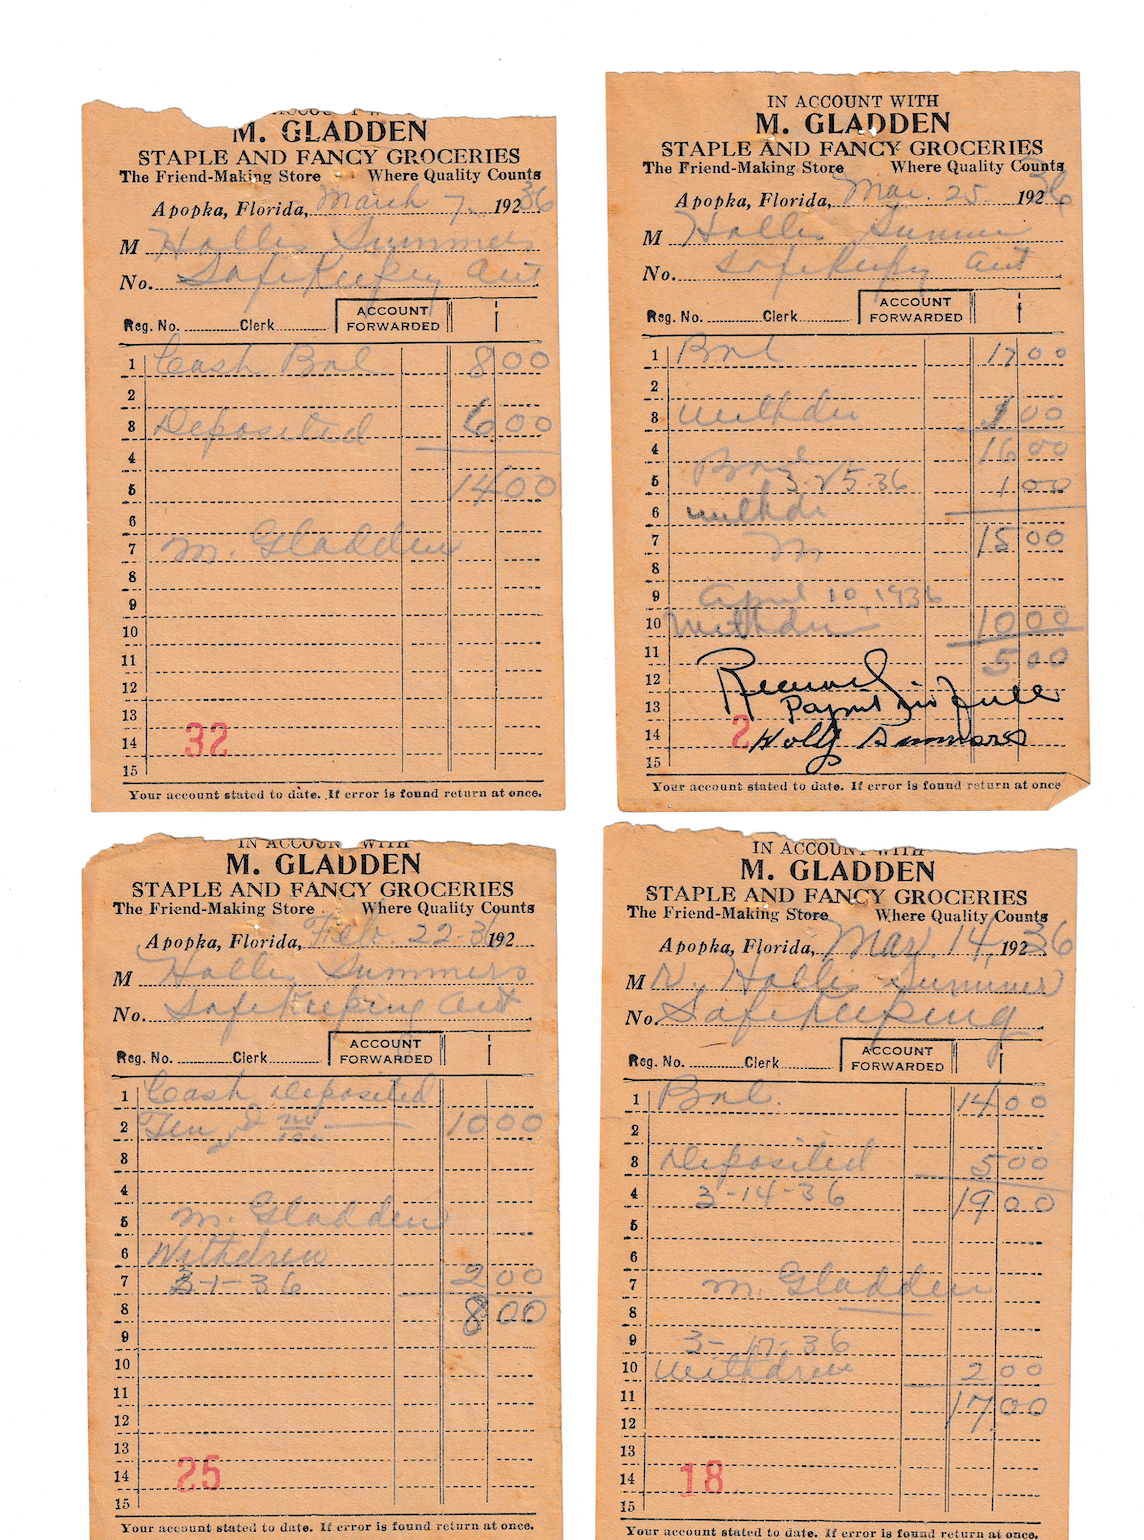 M. GLADDEN
STAPLE AND FANCY GROCERIES
The Friend-Making Store Where Quality Counts
Apopka, Florida, March 7. 1936
M Hollis Summers
No. Safe Keeping act
Reg. No. Clerk ACCOUNT FORWARDED
1 Cash Bal 8 00
2
3 Deposited 6 00
4
5 14 00
6
7 M. Gladden
8
9
10
11
12
13
14 32
15
Your account stated to date. If error is found return at once.
IN ACCOUNT WITH
M. GLADDEN
STAPLE AND FANCY GROCERIES
The Friend-Making Store Where Quality Counts
Apopka, Florida, Mar. 25. 192 36
M Hollis Summer
No. Safe Keeping act
Reg. No. Clerk ACCOUNT FORWARDED
1 Bal 17 00
2
3 withdr 1 00
4 16 00
5 Bal 3-25-36 1 00
6 withdr
7 M 15 00
8
9 April 10, 1936
10 Withdrew 10 00
11 5 00
12 Received
13 Paymt in full
14 2 Holly Summers
15
Your account stated to date. If error is found return at once
IN ACCOUNT WITH
M. GLADDEN
STAPLE AND FANCY GROCERIES
The Friend-Making Store Where Quality Counts
Apopka, Florida, Feb 22-36 192
M Hollis Summers
No. Safe Keeping act
Reg. No. Clerk ACCOUNT FORWARDED
1 Cash Deposited
2 Ten & no/100 10 00
3
4
5 M. Gladden
6 Withdrew
7 3-1-36 2 00
8 8 00
9
10
11
12
13
14 25
15
Your account stated to date. If error is found return at once.
IN ACCOUNT WITH
M. GLADDEN
STAPLE AND FANCY GROCERIES
The Friend-Making Store Where Quality Counts
Apopka, Florida, Mar. 14, 192 36
M N. Hollis Summer
No. Safe Keeping
Reg. No. Clerk ACCOUNT FORWARDED
1 Bal. 14 00
2
3 Deposited 5 00
4 3-14-36 19 00
5
6
7 M. Gladden
8
9 3-17-36
10 Withdrew 2 00
11 17 00
12
13
14 18
15
Your account stated to date. If error is found return at once.